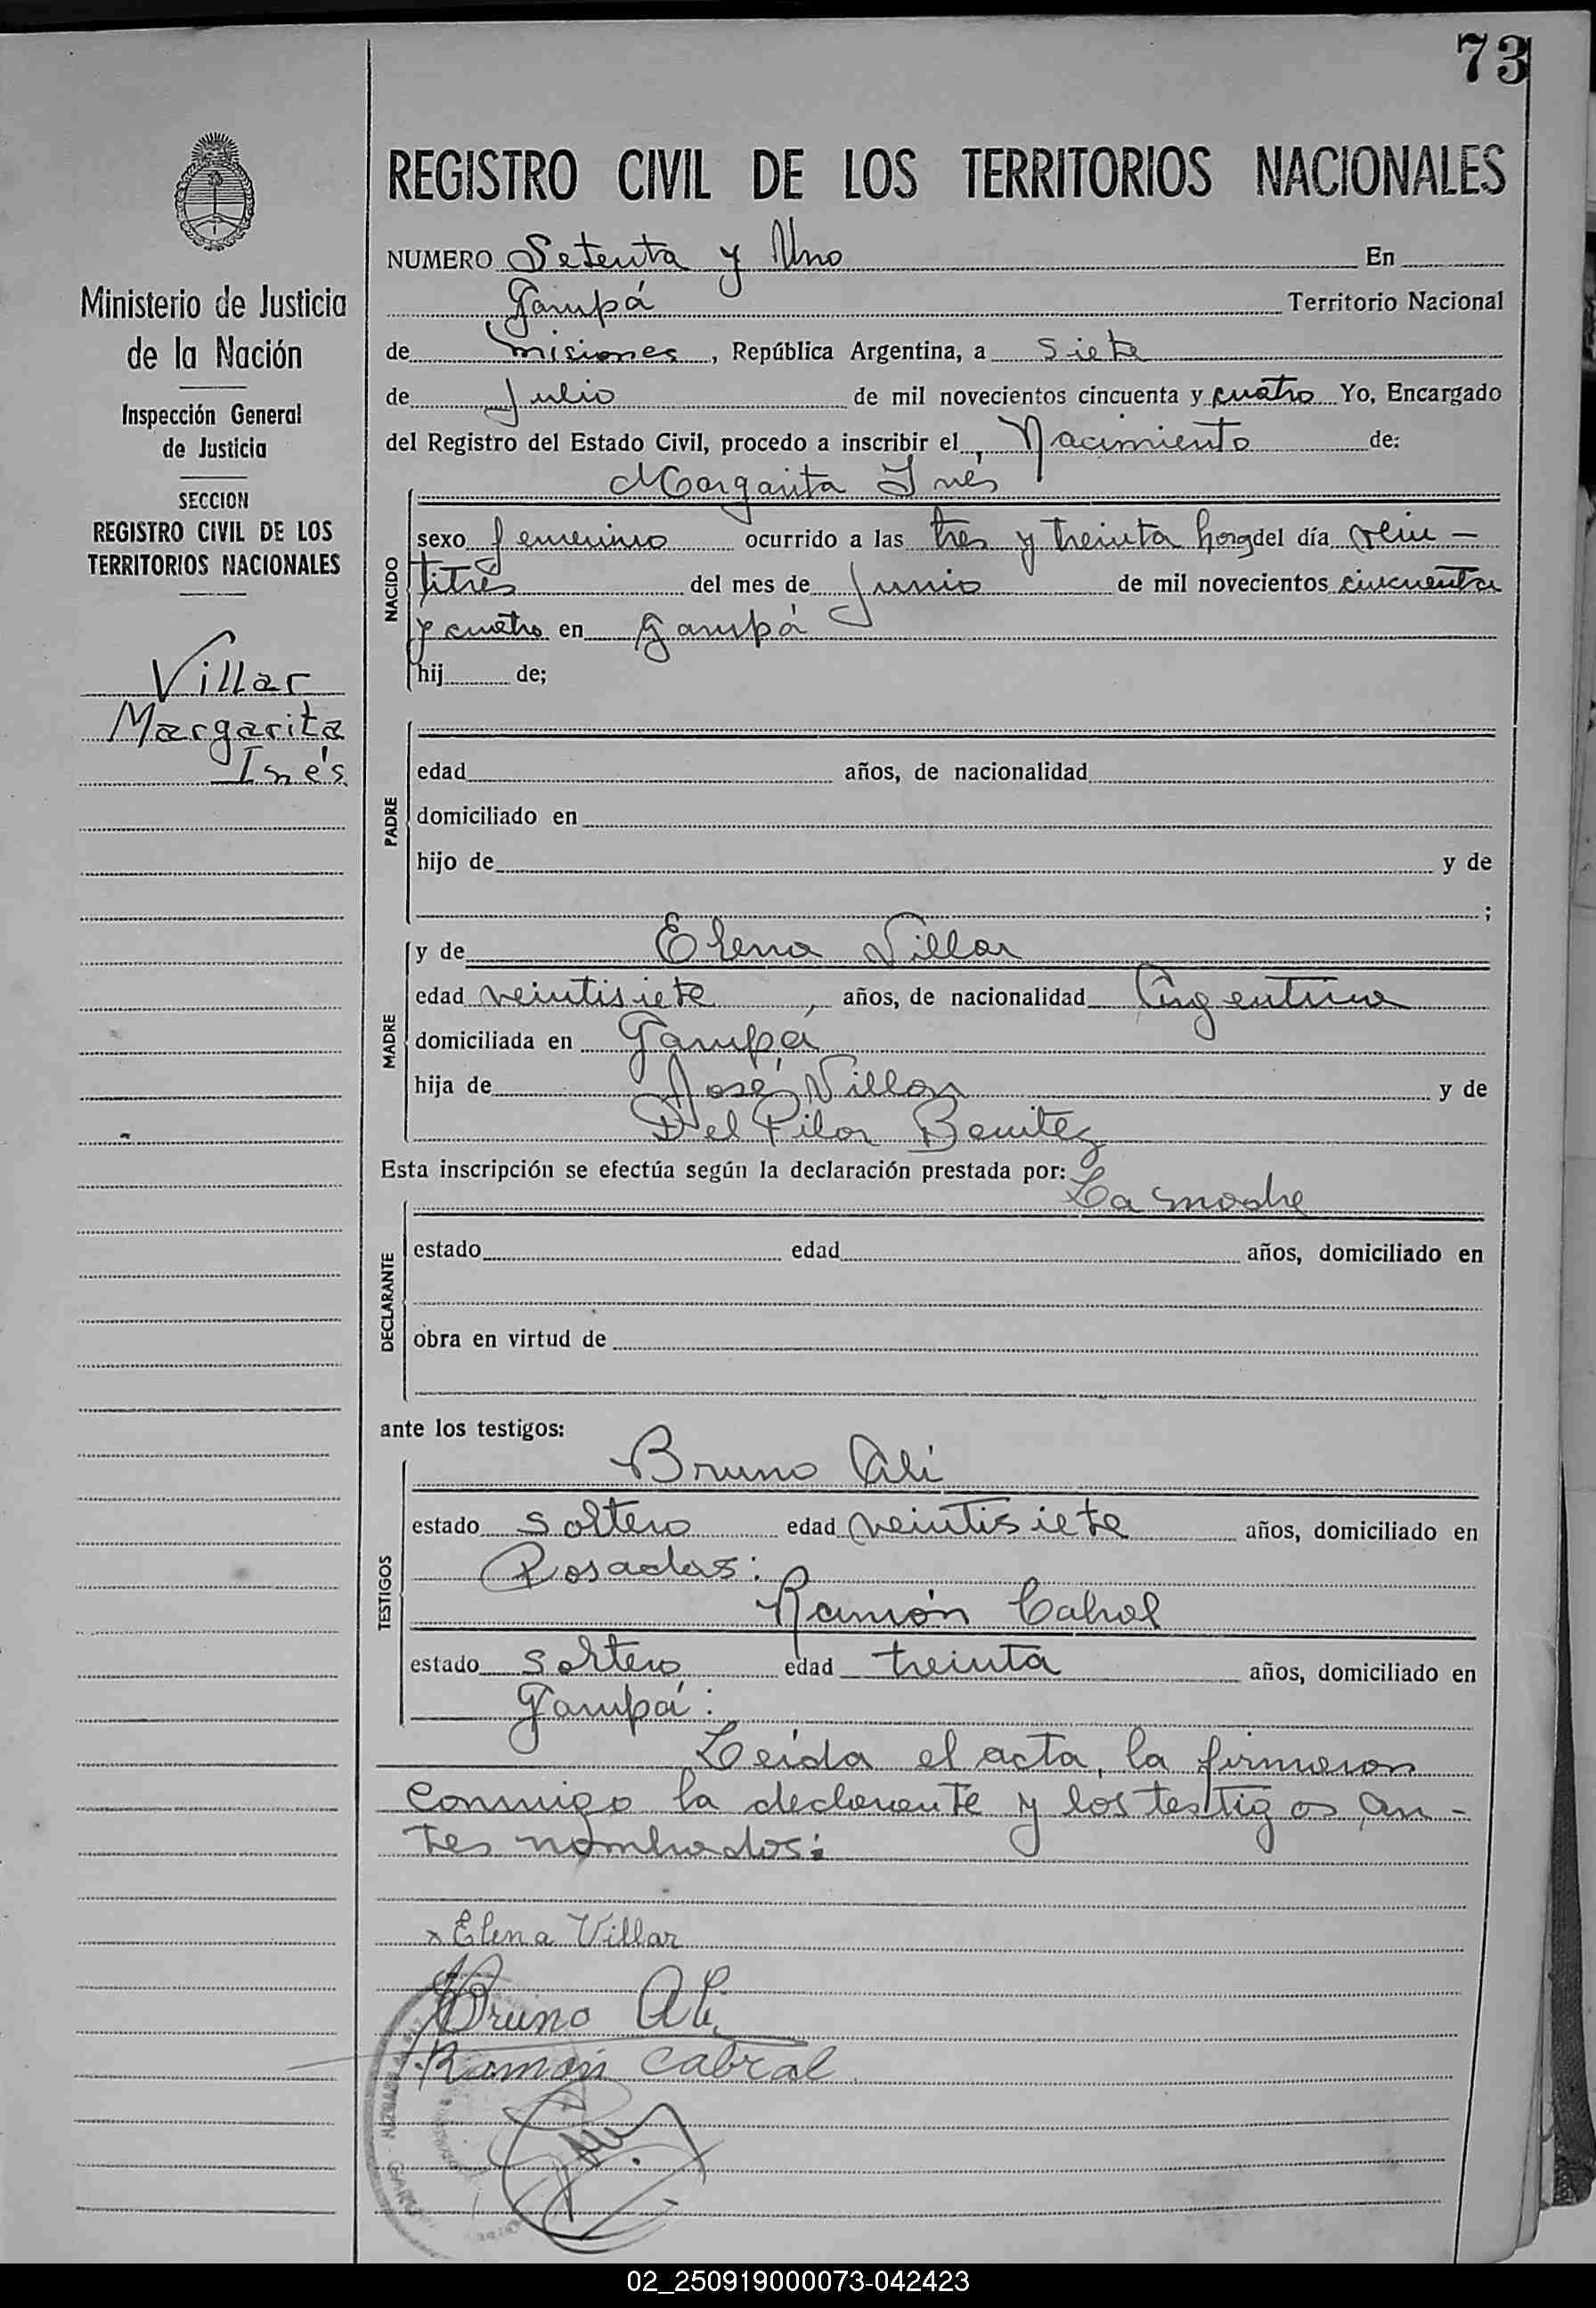 73
REGISTRO CIVIL DE LOS TERRITORIOS NACIONALES
Ministerio de Justicia
de la Nación
Inspección General
de Justicia
SECCION
REGISTRO CIVIL DE LOS
TERRITORIOS NACIONALES
Villar
Margarita
Inés
NUMERO Setenta y Uno En
Garupá Territorio Nacional
de misiones, República Argentina, a siete
de Julio de mil novecientos cincuenta y cuatro Yo, Encargado
del Registro del Estado Civil, procedo a inscribir el Nacimiento de:
NACIDO
Margarita Inés
sexo femenino ocurrido a las tres y treinta horas del día vein-
titrés del mes de Junio de mil novecientos cincuenta
y cuatro en Garupá
hij de;
PADRE
edad años, de nacionalidad
domiciliado en
hijo de y de
;
MADRE
y de Elena Villar
edad veintisiete, años, de nacionalidad Argentina
domiciliada en Garupá
hija de José Villar y de
Del Pilar Benitez
Esta inscripción se efectúa según la declaración prestada por:
La madre
DECLARANTE
estado edad años, domiciliado en
obra en virtud de
ante los testigos:
TESTIGOS
Bruno Ali
estado soltero edad veintisiete años, domiciliado en
Posadas:
Ramón Cabral
estado soltero edad treinta años, domiciliado en
Garupá:
Leída el acta, la firmaron
conmigo la declarante y los testigos an-
tes nombrados:
x Elena Villar
Bruno Ali
Ramón Cabral
02_250919000073-042423